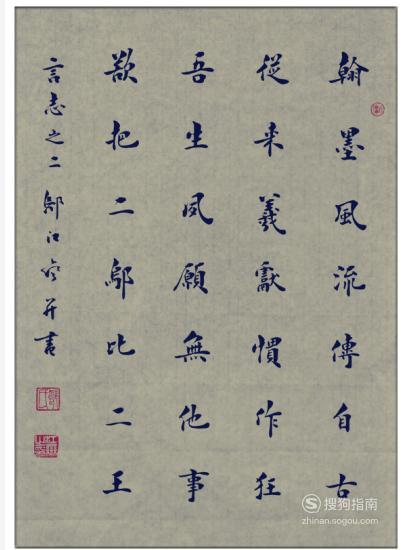 翰墨風流傳自古
從來羲獻慣作狂
吾生夙願無他事
欲把二鄔比二王
言志之二 鄔江吟并書
搜狗指南
zhinan.sogou.com